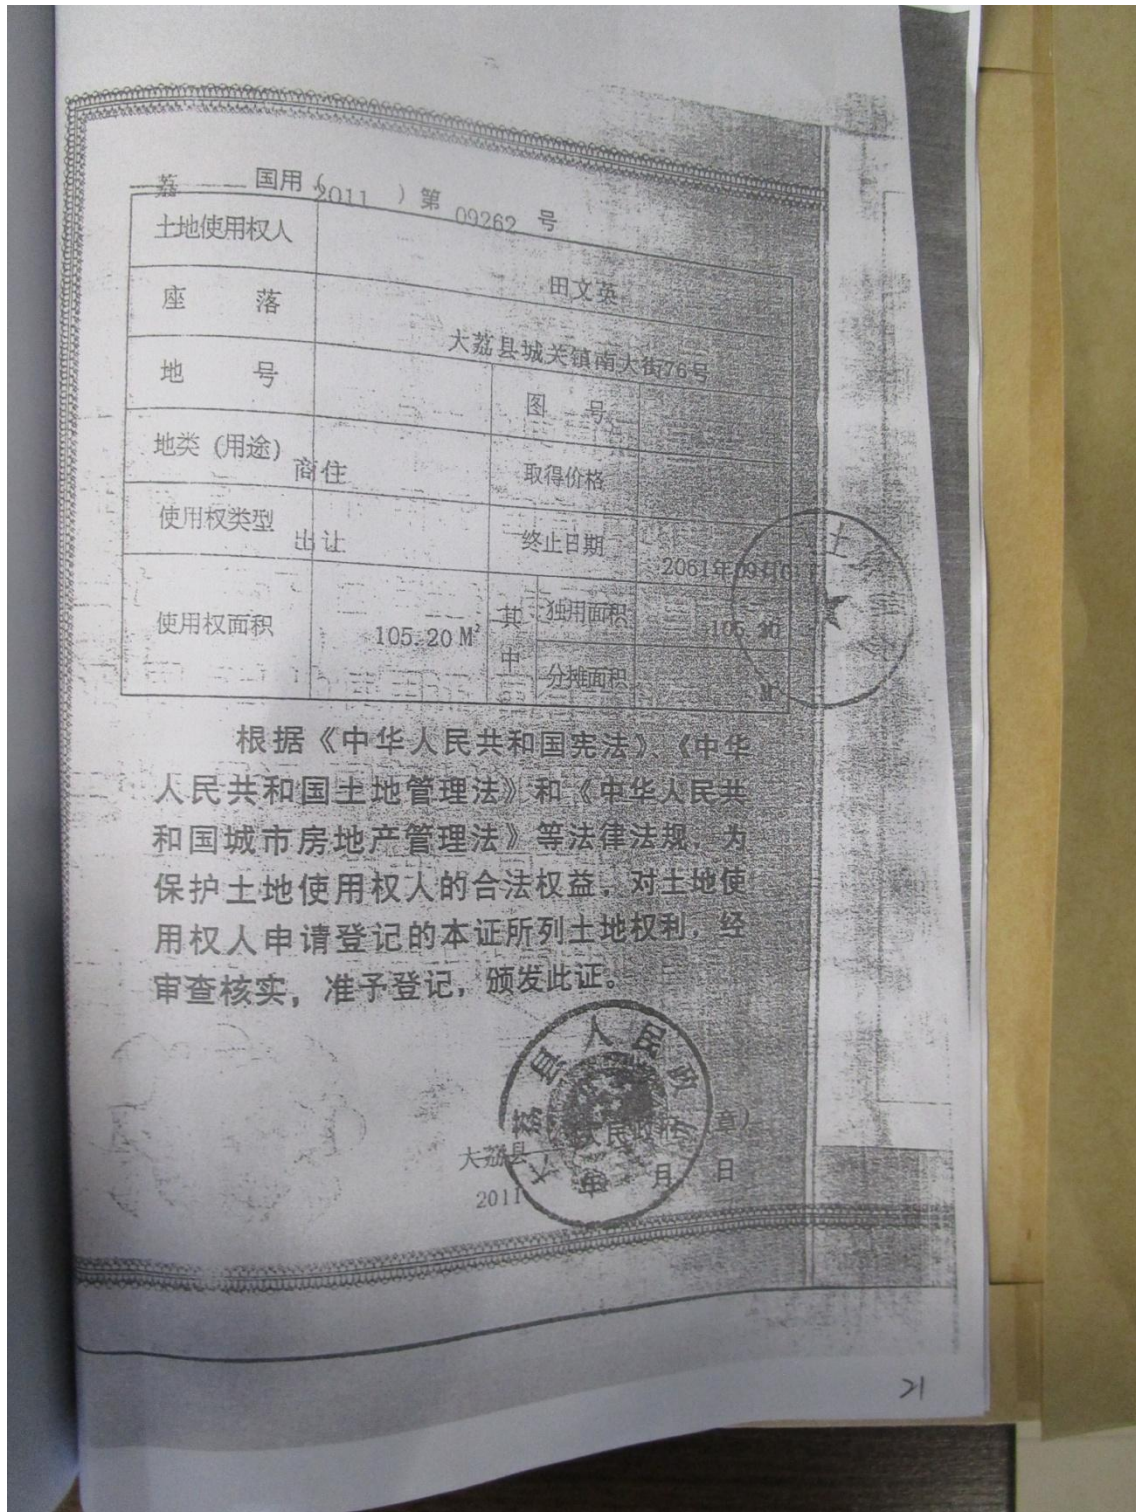 荔 国用（2011）第 09262 号
土地使用权人 田文英
座 落 大荔县城关镇南大街76号
地 号 图 号
地类（用途） 商住 取得价格
使用权类型 出让 终止日期 2061年09月
使用权面积 105.20 M² 其中 独用面积 105.20
分摊面积 M²
根据《中华人民共和国宪法》《中华
人民共和国土地管理法》和《中华人民共
和国城市房地产管理法》等法律法规，为
保护土地使用权人的合法权益，对土地使
用权人申请登记的本证所列土地权利，经
审查核实，准予登记，颁发此证。
大荔县人民政府
大荔县 章）
2011 年 月 日
21